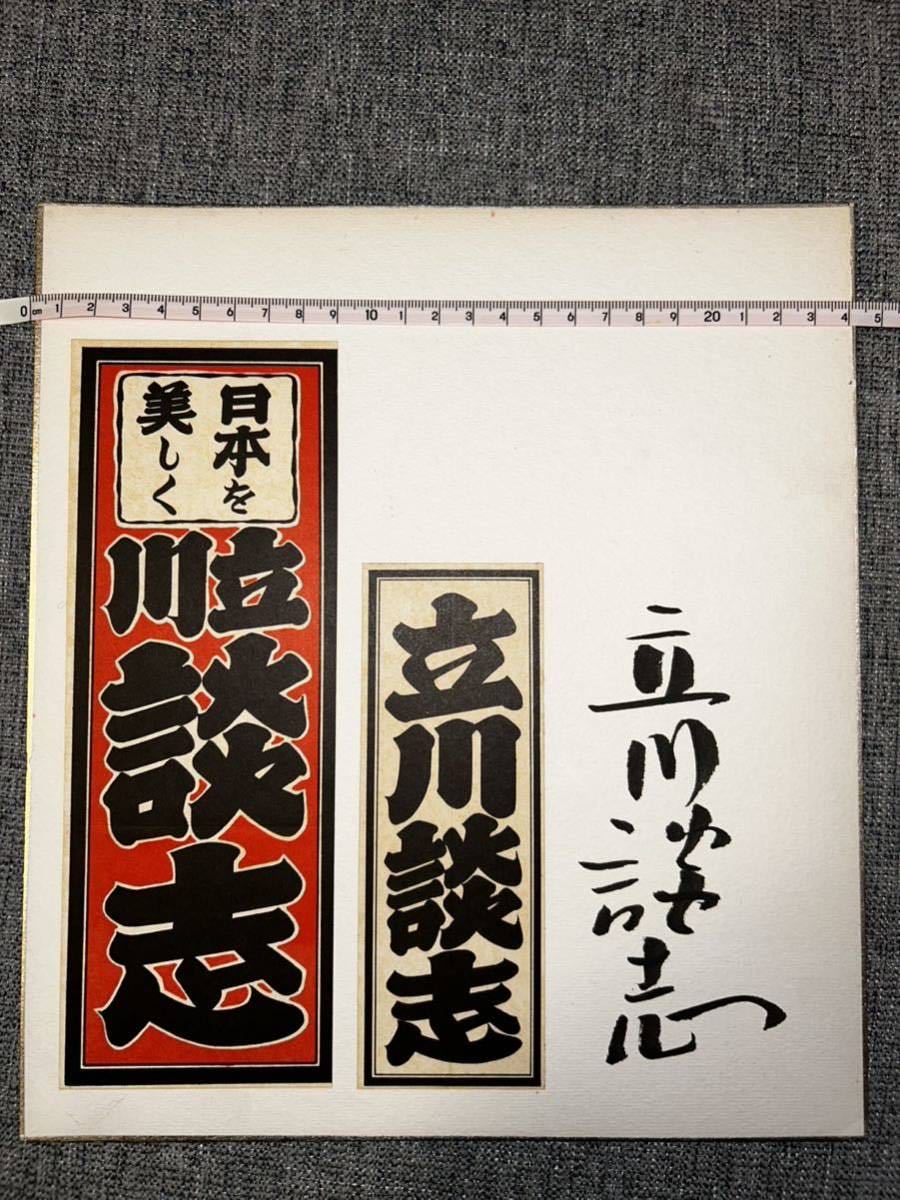 0 cm 1 2 3 4 5 6 7 8 9 10 1 2 3 4 5 6 7 8 9 20 1 2 3 4 5
日本を
美しく
立川
談
志
立川談志
立川談志